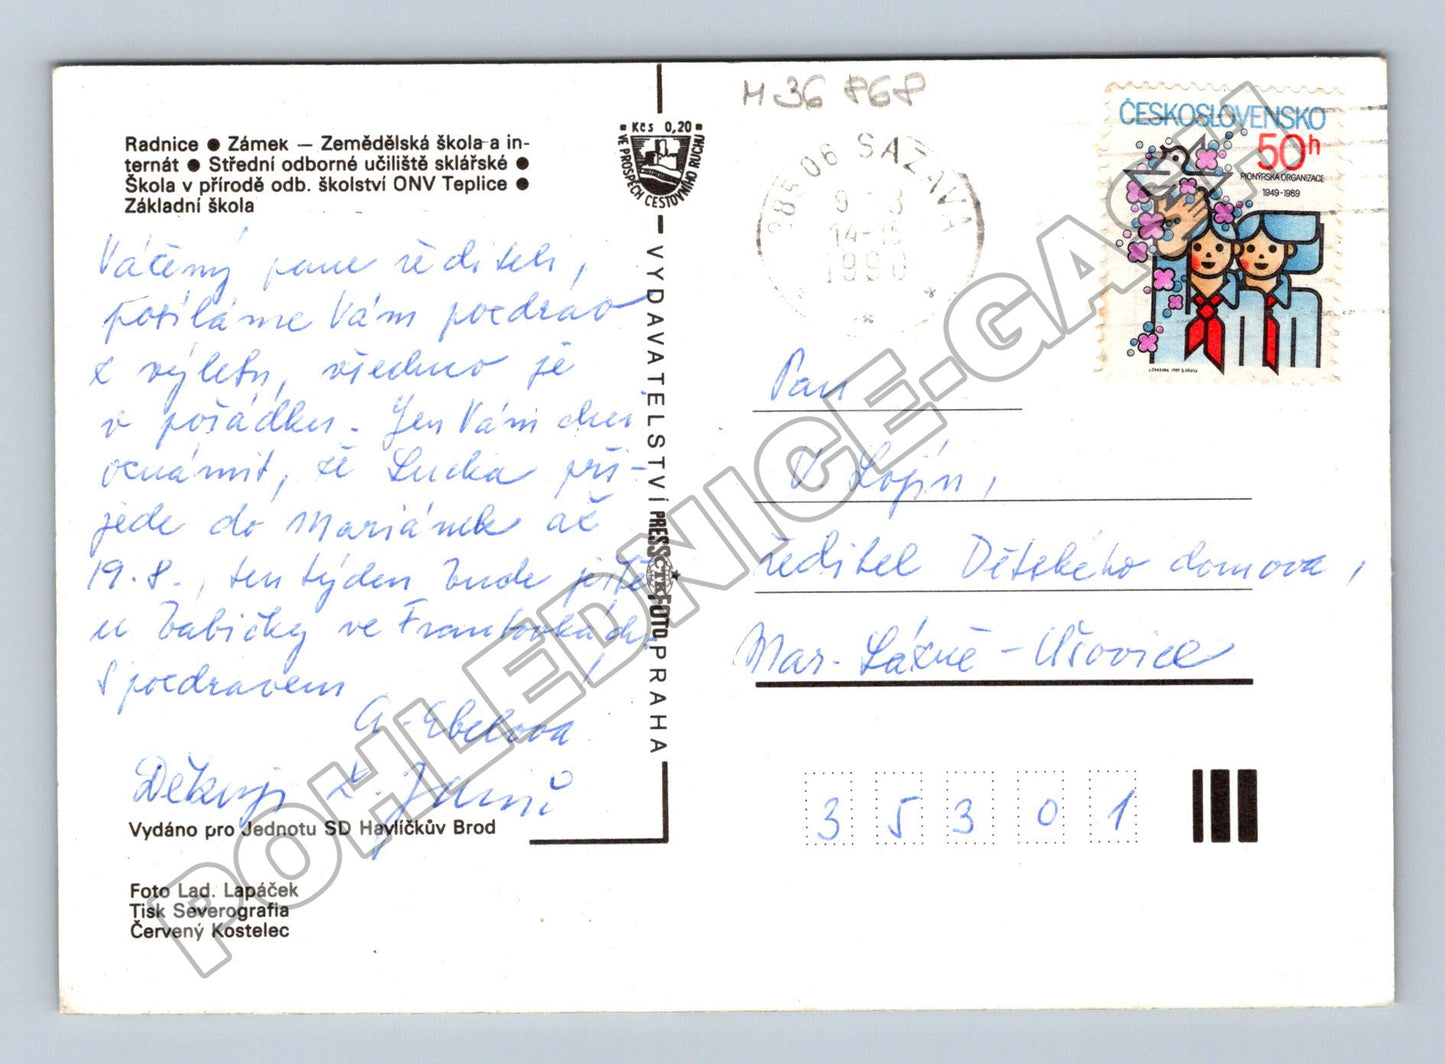 Radnice ● Zámek — Zemědělská škola a in-
ternát ● Střední odborné učiliště sklářské ●
Škola v přírodě odb. školství ONV Teplice ●
Základní škola
Váčený pane řediteli,
posíláme Vám pozdrav
z výletu, všechno je
v pořádku. Jen Vám chci
oznámit, že Lucka při-
jede do Mariánek až
19.8., ten týden bude ještě
u babičky ve Františkách,
S pozdravem
A. Ebelova
Děkuji
Vydáno pro Jednotu SD Havlíčkův Brod
Foto Lad. Lapáček
Tisk Severografia
Červený Kostelec
Kčs 0,20
VE PROSPĚCH CESTOVNÍHO RUCHU
VYDAVATELSTVÍ PRESSFOTO PRAHA
ČTK
M 36 868
285 06 SÁZAVA
9. 8
14-15
1990
ČESKOSLOVENSKO
50h
PIONÝRSKÁ ORGANIZACE
1949-1989
Pan
V. Lojín,
ředitel Dětského domova,
Mar. Lázně - Úšovice
35301
POHLEDNICE-GASH